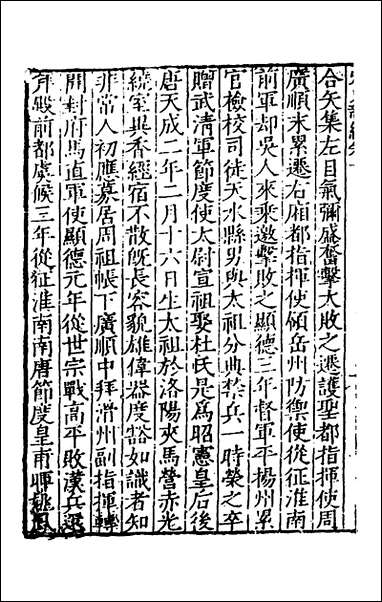 合矢集左目氣彌盛奮擊大敗之遷護聖都指揮使周
廣順末累遷右廂都指揮使領岳州防禦使從征淮南
前軍却吳人來乘邀擊敗之顯德三年督軍平揚州累
官檢校司徒天水縣男與太祖分典禁兵一時榮之卒
贈武清軍節度使太尉宣祖娶杜氏是爲昭憲皇后後
唐天成二年二月十六日生太祖於洛陽夾馬營赤光
繞室異香經宿不散旣長容貌雄偉器度豁如識者知
非常人初應募居周祖帳下廣順中拜滑州副指揮轉
開封府馬直軍使顯德元年從世宗戰高平敗漢兵還
拜殿前都虞候三年從征淮南南唐節度皇甫暉姚鳳